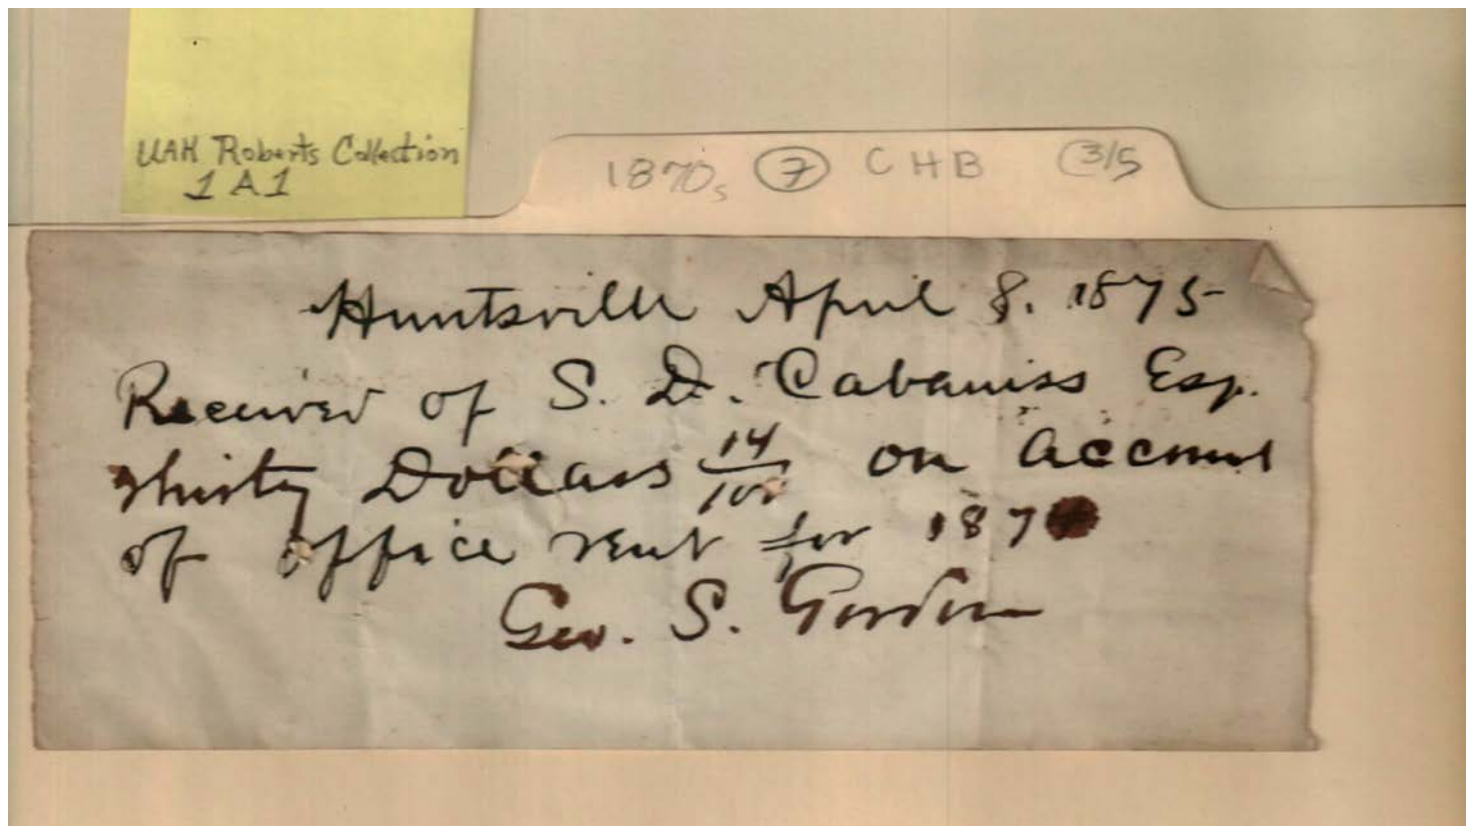 UAH Roberts Collection
1A1
1870s 7 CHB 3/5
Huntsville April 8. 1875
Received of S. D. Cabaniss Esq.
thirty Dollars 14/100 on account
of office rent for 187
Geo. S. Gordon